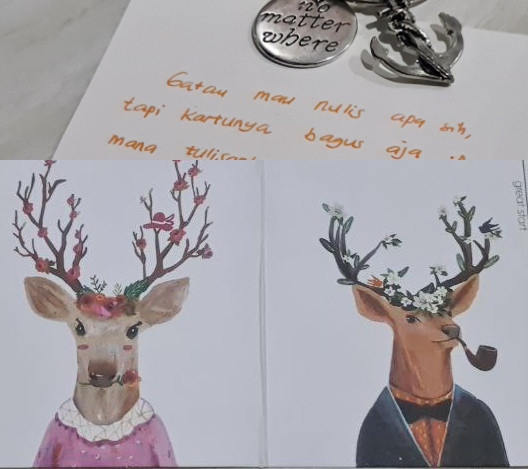 no
matter
where
Gatau mau nulis apa sih,
tapi kartunya bagus aja
mana
great start